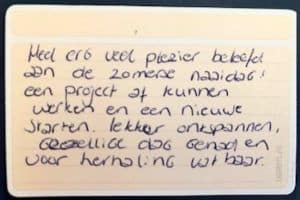 Heel erg veel plezier beleefd
aan de zomerse naaidag!
een project af kunnen
werken en een nieuwe
starten. lekker ontspannen,
gezellige dag gehad en
voor herhaling vatbaar.